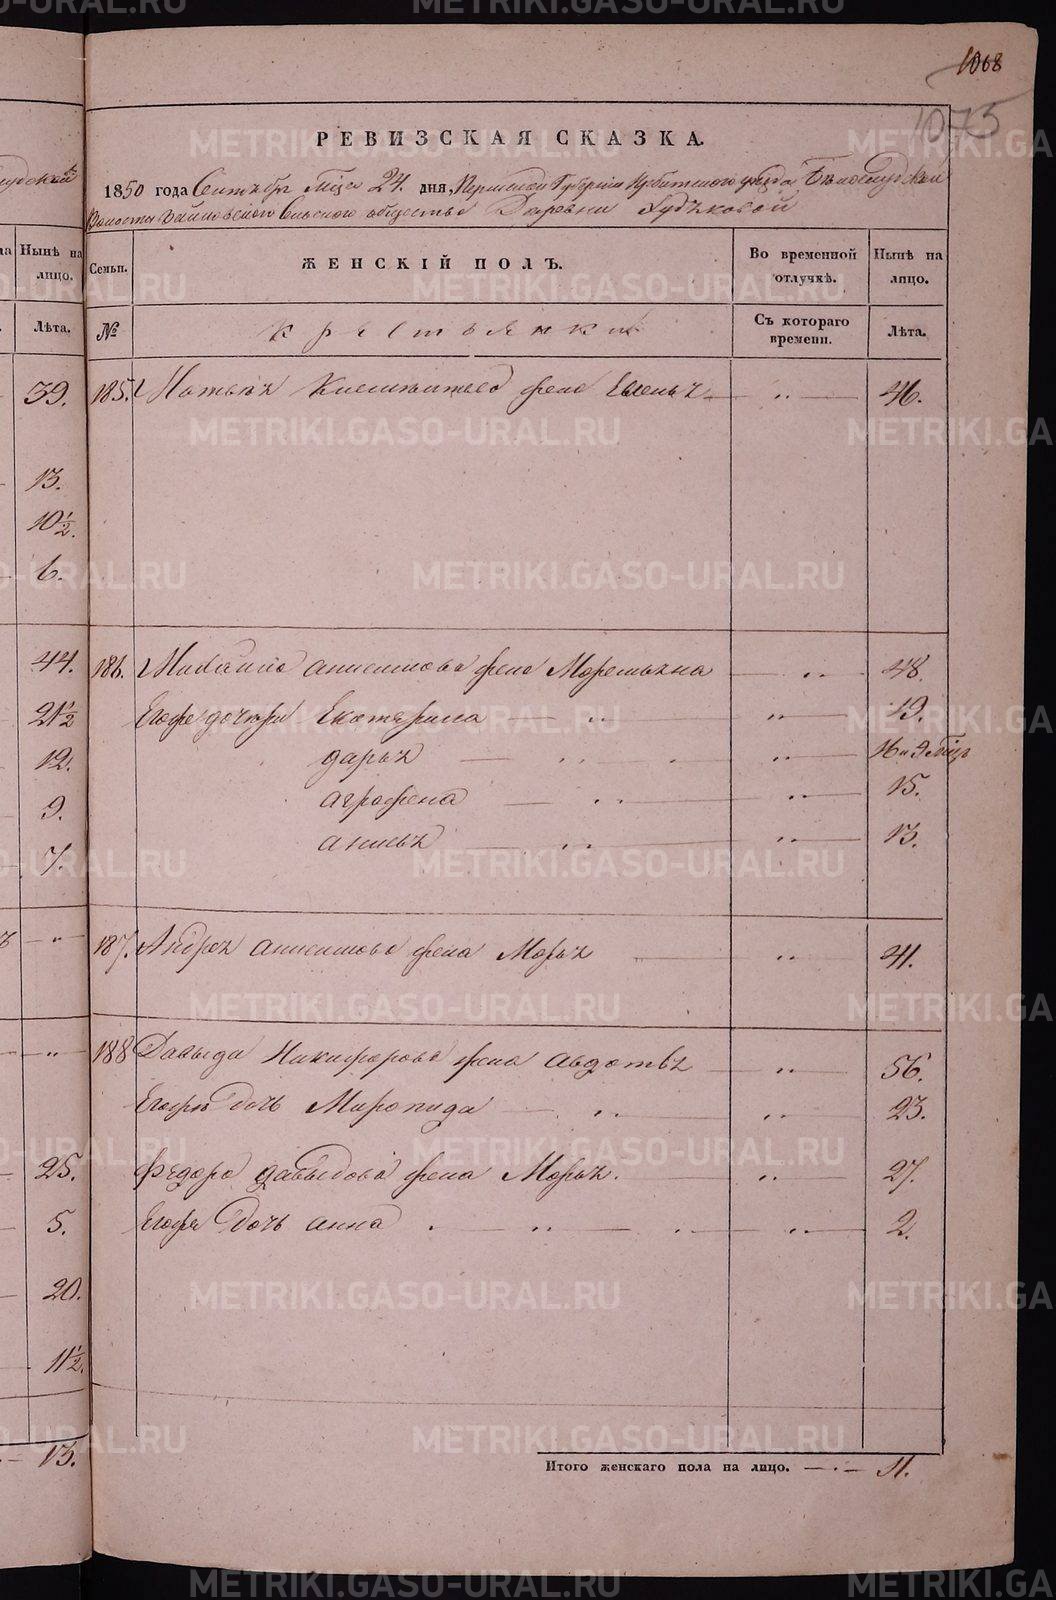 1068
1075
РЕВИЗСКАЯ СКАЗКА.
1850 года Сентября Мца 24. дня, Пермской Губернии Ирбитского уезда Белослудской
Волости Сельского общества Деревни
Нынѣ на лицо.
Семьи.
ЖЕНСКІЙ ПОЛЪ.
Во временной отлучкѣ.
Нынѣ на лицо.
Лѣта.
№
крестьянки
Съ котораго времени.
Лѣта.
39.
185. жена 46.
13.
10½.
6.
44.
186. Анисимова жена 48.
21½
Егоже дочери Екатерина 19.
12.
Дарья 16 и 9 мцв
9.
Аграфена 15.
7.
Анисья 13.
187. Андрея Анисимова жена Марья 41.
188 Давыда Никифорова жена Авдотья 56.
Егоже дочь Миропида 23.
25.
Федора Давыдова жена Марья. 27.
5.
Егоже дочь Анна 2.
20.
11½
13.
Итого женскаго пола на лицо. 11.
METRIKI.GASO-URAL.RU